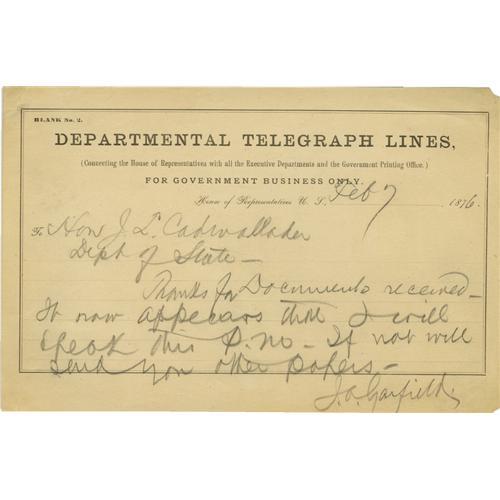 BLANK No. 2.
DEPARTMENTAL TELEGRAPH LINES,
(Connecting the House of Representatives with all the Executive Departments and the Government Printing Office.)
FOR GOVERNMENT BUSINESS ONLY.
House of Representatives U. S., Feb 7 1876.
To Hon J. L. Cadwallader
Dept of State —
Thanks for Documents received —
It now appears that I will
speak this P.M. — If not will
send you other papers —
J. A. Garfield.